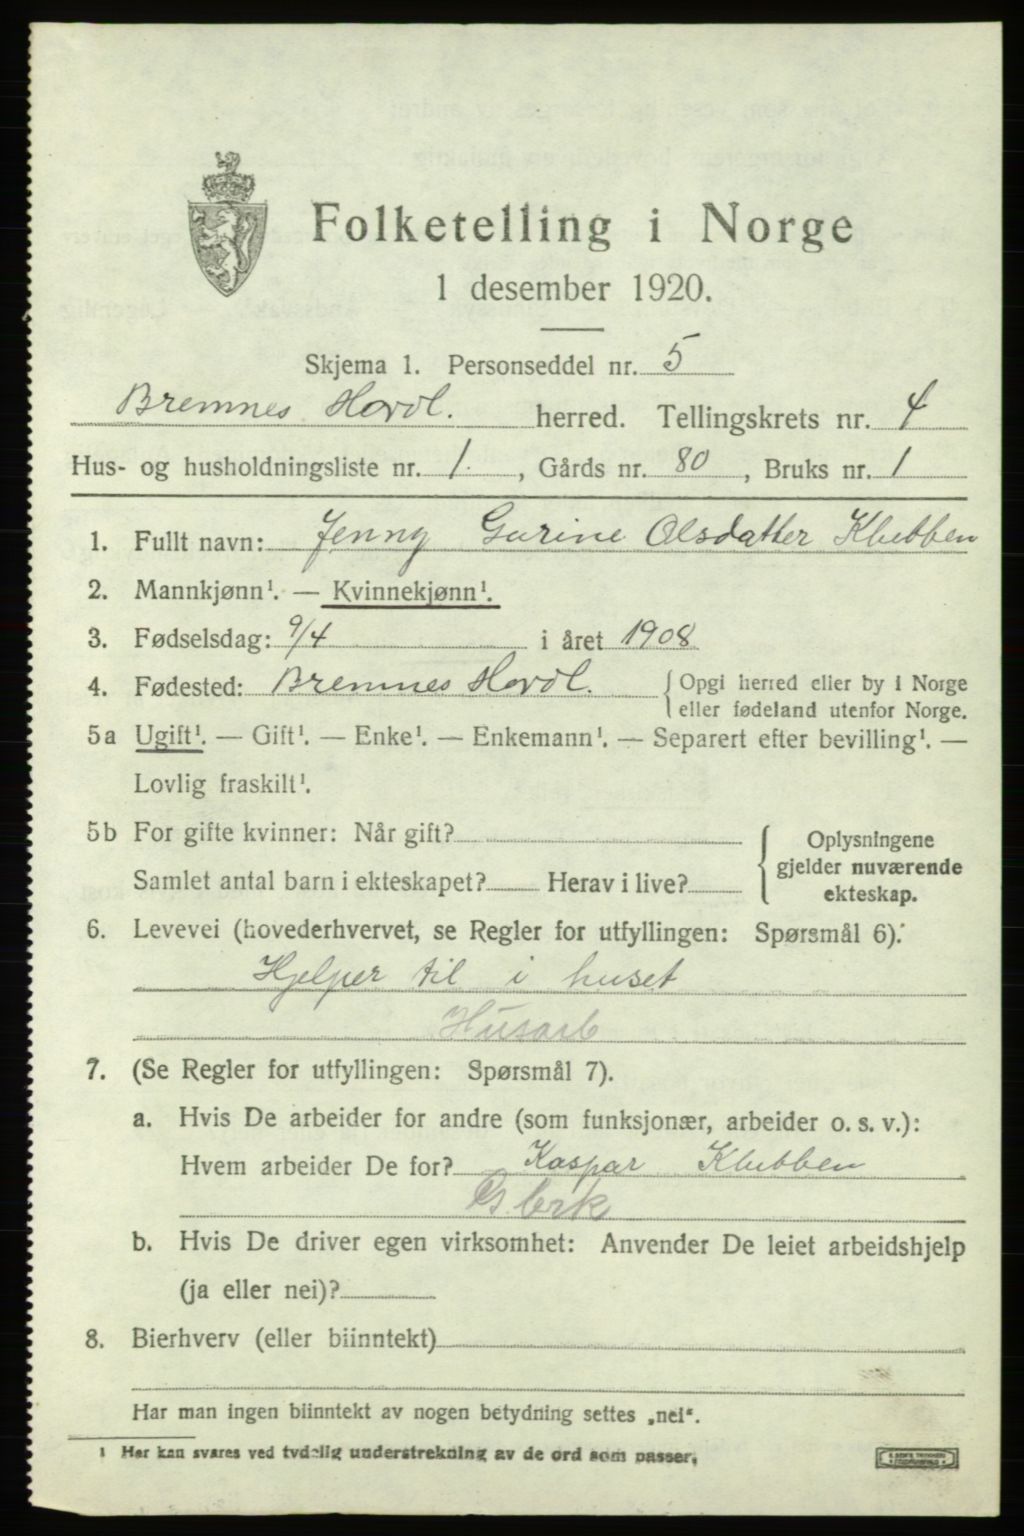 Folketelling i Norge
1 desember 1920.
Skjema 1. Personseddel nr. 5
Bremnes Hordl. herred. Tellingskrets nr. 4
Hus- og husholdningsliste nr. 1. , Gårds nr. 80 , Bruks nr. 1
1. Fullt navn: Jenny Gurine Olsdatter Klubben
2. Mannkjønn¹. — Kvinnekjønn¹.
3. Fødselsdag: 9/4 i året 1908
4. Fødested: Bremnes Hordl. { Opgi herred eller by i Norge
eller fødeland utenfor Norge.
5a Ugift¹. — Gift¹. — Enke¹. — Enkemann¹. — Separert efter bevilling¹. —
Lovlig fraskilt¹.
5b For gifte kvinner: Når gift?
Samlet antal barn i ekteskapet? Herav i live?
{ Oplysningene
gjelder nuværende
ekteskap.
6. Levevei (hovederhvervet, se Regler for utfyllingen: Spørsmål 6).
Hjelper til i huset
Husarb
7. (Se Regler for utfyllingen: Spørsmål 7).
a. Hvis De arbeider for andre (som funksjonær, arbeider o. s. v.):
Hvem arbeider De for? Kaspar Klubben
b. Hvis De driver egen virksomhet: Anvender De leiet arbeidshjelp
(ja eller nei)?
8. Bierhverv (eller biinntekt)
Har man ingen biinntekt av nogen betydning settes „nei“.
¹ Her kan svares ved tydelig understrekning av de ord som passer.